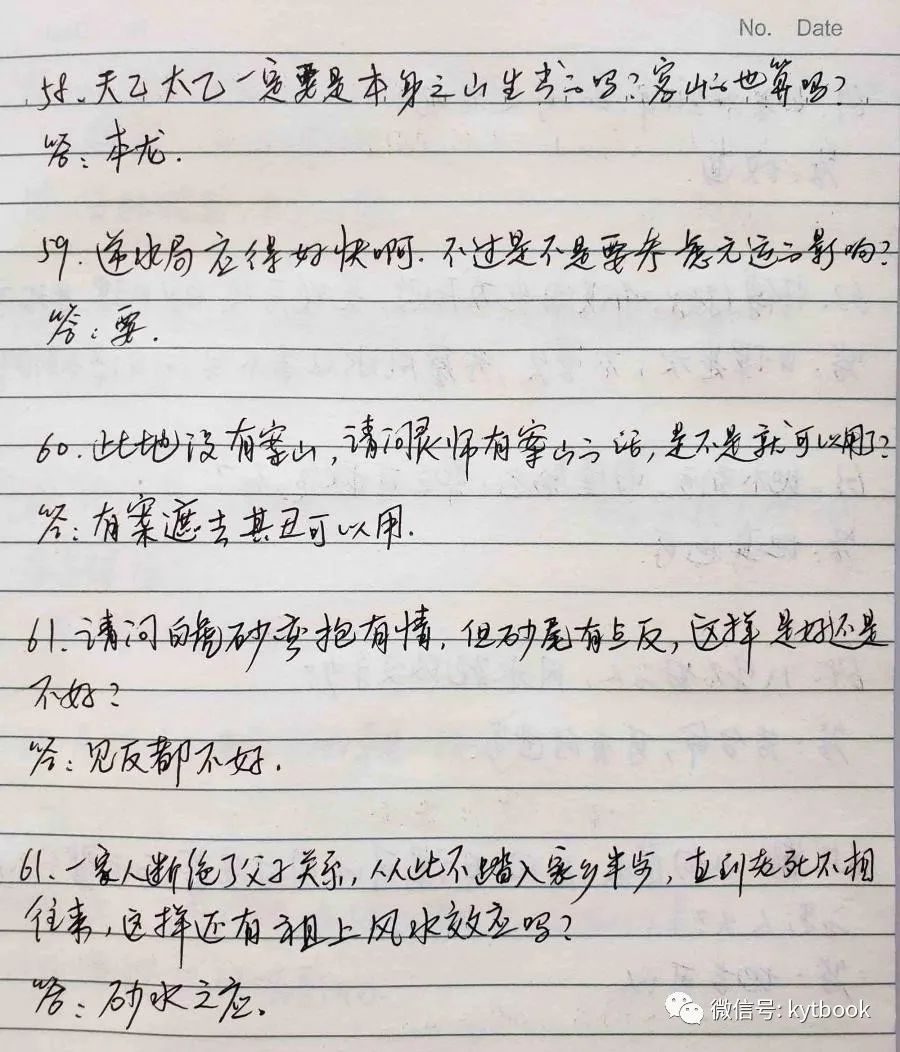 No. Date
58、天乙太乙一定要是本身之山生出的吗?客山的也算吗?
答:本龙.
59.逆水局应得好快啊.不过是不是要考虑元运的影响?
答:要.
60.此地没有案山,请问灵师有案山的话,是不是就可以用了?
答:有案遮去其丑可以用.
61.请问白虎砂弯抱有情,但砂尾有点反,这样是好还是
不好?
答:见反都不好.
61.一家人断绝了父子关系,从此不踏入家乡半步,直到老死不相
往来,这样还有祖上风水效应吗?
答:砂水之应.
微信号: kytbook